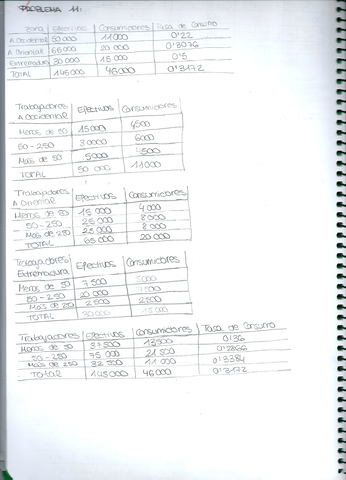 PROBLEMA 11:
Zona Efectivos Consumidores Tasa de Consumo
A Occidental 50 000 11 000 0'22
A Oriental 65 000 20 000 0'3076
Extremadura 30 000 15 000 0'5
TOTAL 145 000 46 000 0'3172
Trabajadores A Occidental Efectivos Consumidores
Menos de 50 15 000 4500
50-250 30 000 6000
Más de 50 5000 500
TOTAL 50 000 11 000
Trabajadores A Oriental Efectivos Consumidores
Menos de 50 15 000 4 000
50-250 25 000 8 000
Más de 250 25 000 8 000
TOTAL 65 000 20 000
Trabajadores Extremadura Efectivos Consumidores
Menos de 50 7 500 5000
50-250 20 000 7 500
Más de 250 2 500 2500
TOTAL 30 000 15 000
Trabajadores Efectivos Consumidores Tasa de Consumo
Menos de 50 37 500 13 500 0'36
50-250 75 000 21 500 0'2866
Más de 250 32 500 11 000 0'3384
Total 145 000 46 000 0'3172